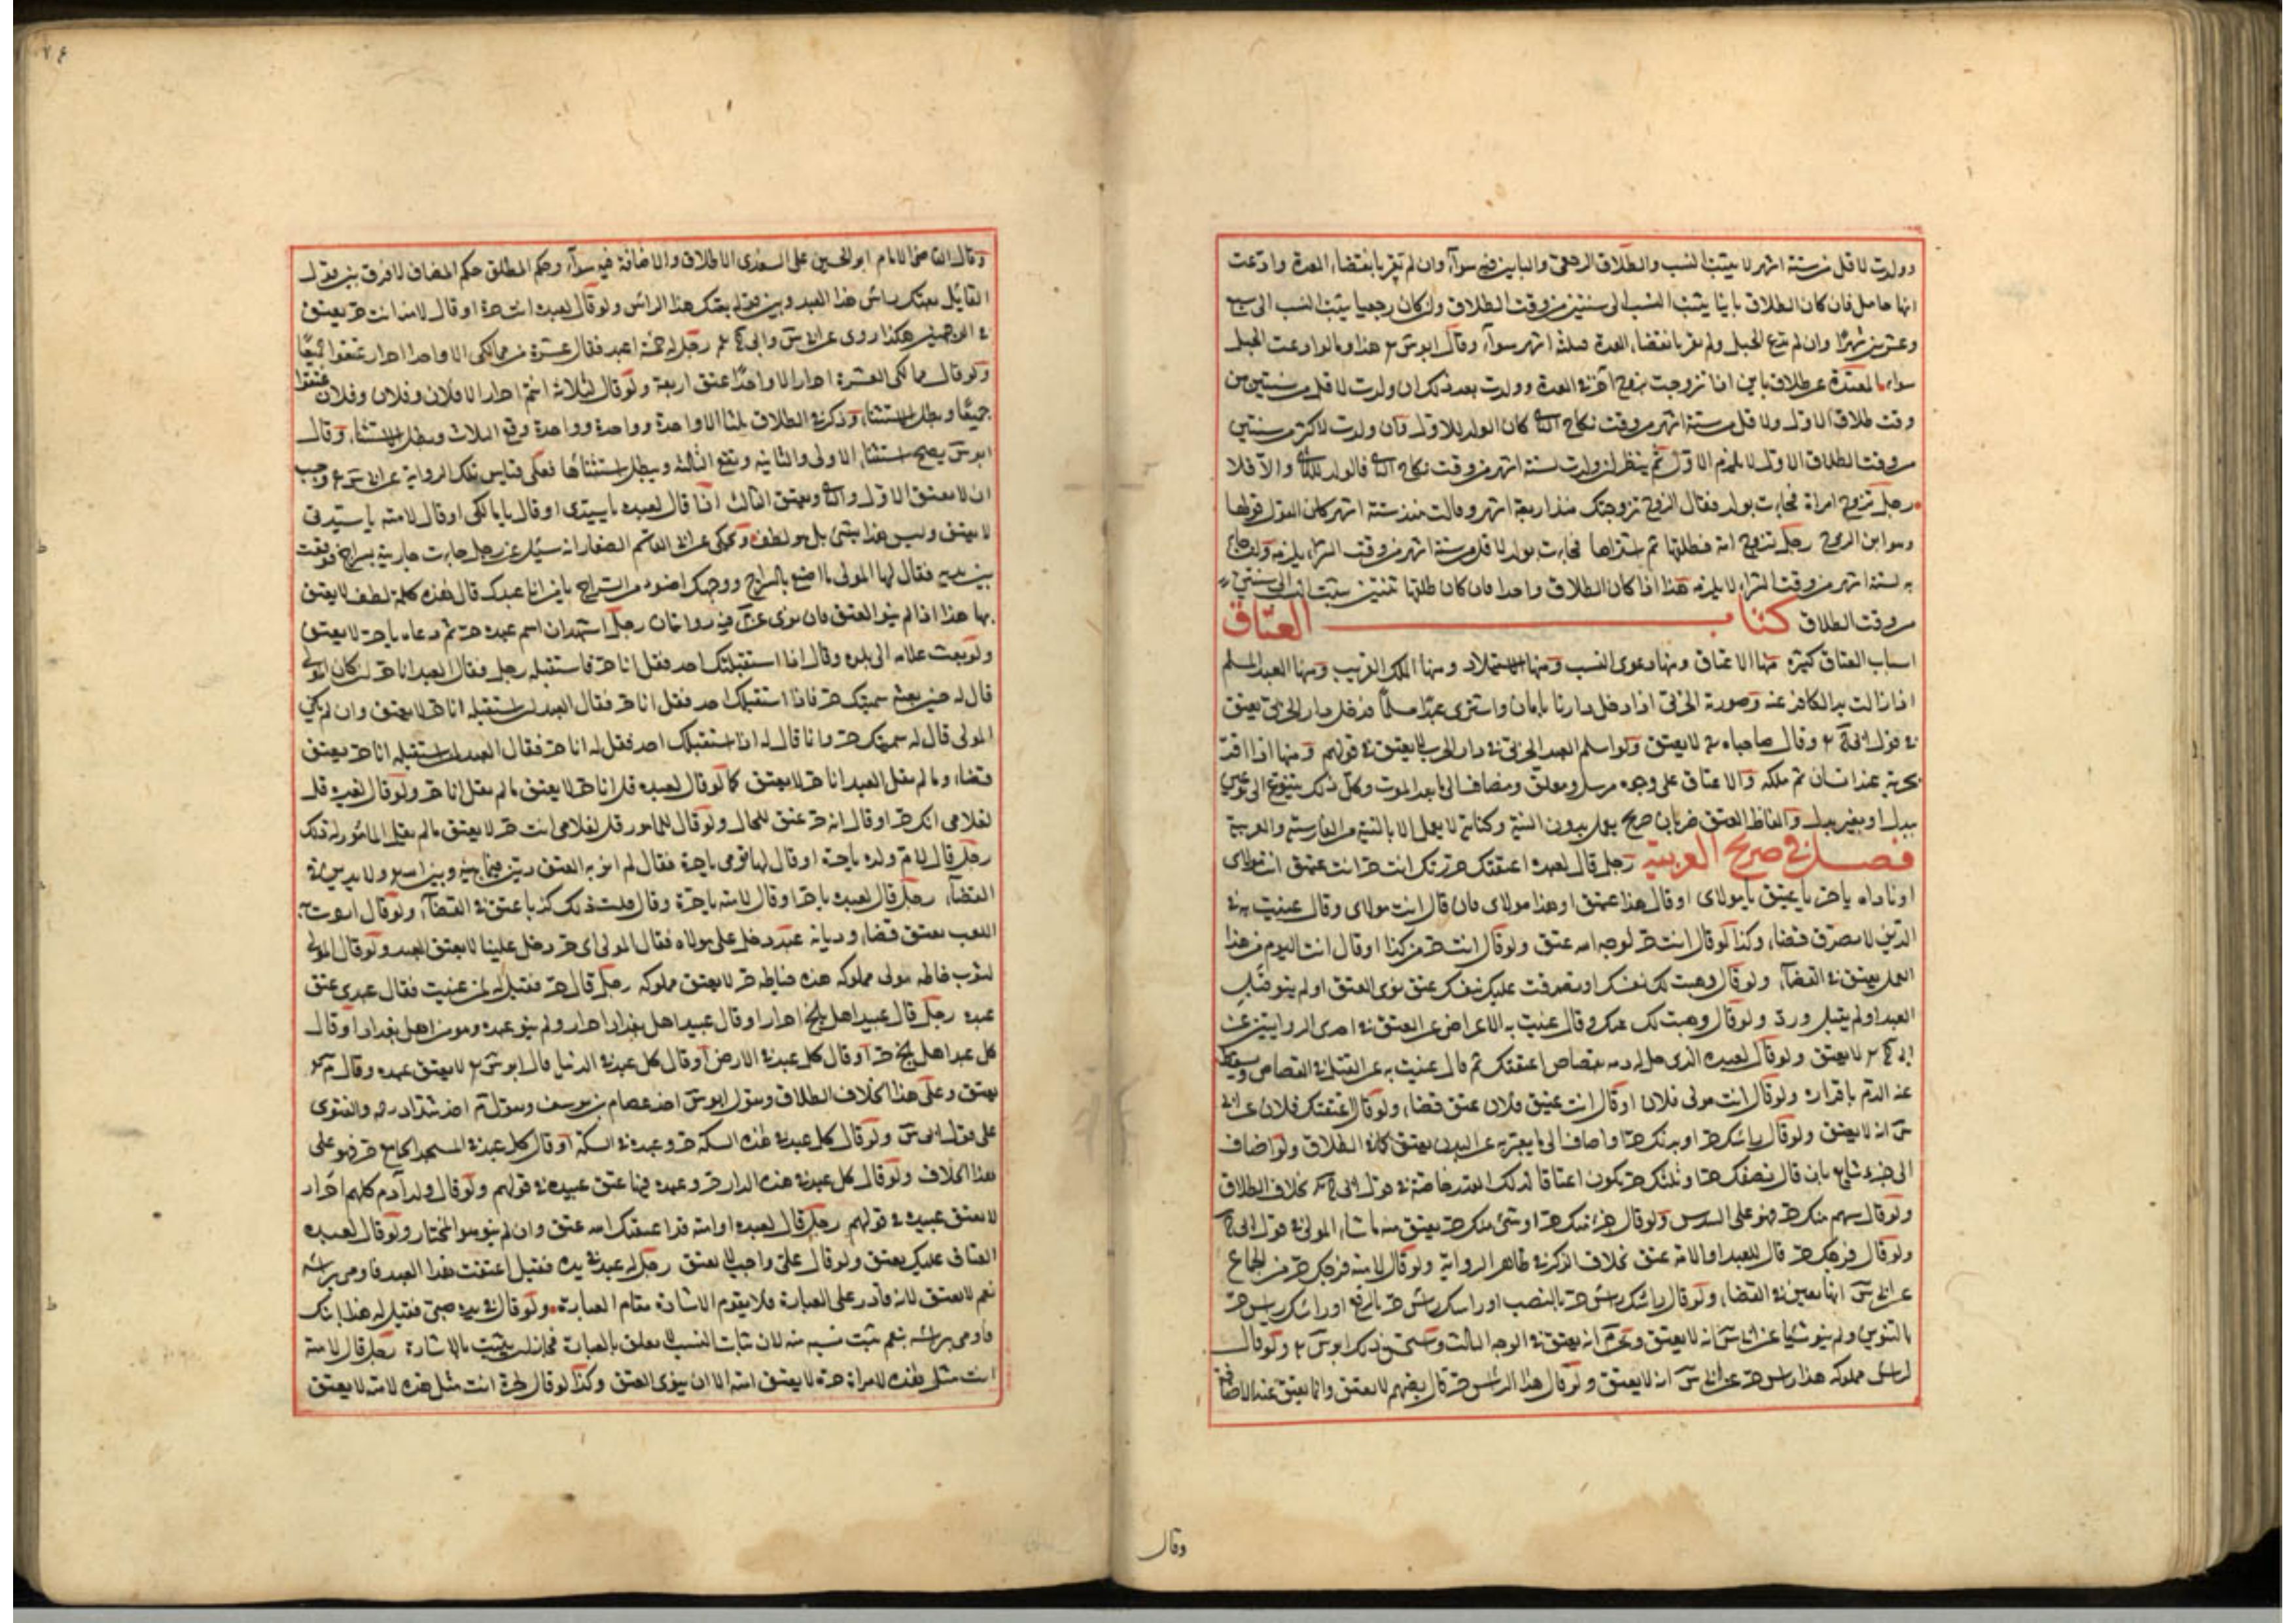 وولدت لاقل من ستة اشهر لا يثبت النسب والطلاق الرجعى والباين فيه سوآء وان لم تقر بانقضاء العدة وادعت
انها حامل فان كان الطلاق باينا يثبت النسب الى سنتين من وقت الطلاق وان كان رجعيا يثبت النسب الى
وعشرين شهرًا وان لم تدع الحبل ولم تقر بانقضاء العدة فبثلثة اشهر سوآء وقال ابو س هذا وما لو ادعت الحبل
سواء المعتدة عن طلاق باين اذا تزوجت بزوج آخر في العدة وولدت بعد ذلك ان ولدت لاقل من سنتين من
وقت طلاق الاول ولاقل من ستة اشهر من وقت نكاح الثانى كان الولد للاول وان ولدت لاكثر من سنتين
من وقت الطلاق الاول لا يلزم الاول ثم ينظر ان ولدت لستة اشهر من وقت نكاح الثانى فالولد للثانى والا فلا
رجل تزوج امراة فجاءت بولد فقال الزوج تزوجتك منذ اربعة اشهر وقالت منذ ستة اشهر كان القول قولها
وهو ابن الزوج رجل تزوج امة فطلقها ثم اشتراها فجاءت بولد لاقل من ستة اشهر من وقت الشراء يلزمه وان جاءت
به لستة اشهر من وقت الشراء لا يلزمه هذا اذا كان الطلاق واحدا فان كان طلقها ثنتين يثبت النسب الى سنتين
من وقت الطلاق كتاب العتاق
اسباب العتاق كثيرة منها الاعتاق ومنها دعوى النسب ومنها الاستيلاد ومنها الملك القريب ومنها العبد المسلم
اذا زالت يد الكافر عنه وصورة الحربى اذا دخل دارنا بامان واشترى عبدًا مسلمًا فدخل دار الحرب يعتق
في قول ابى ح وقال صاحباه لا يعتق ولو اسلم العبد الحربى في دار الحرب لا يعتق في قولهم ومنها اذا اقر
بحرية عبد انسان ثم ملكه والاعتاق على وجوه مرسل ومعلق ومضاف الى ما بعد الموت وكل ذلك يتنوع الى نوعين
ببدل او بغير بدل والفاظ العتق ضربان صريح يعمل بدون النية وكناية لا يعمل الا بالنية من الفارسية والعربية
فصل في صريح العربية رجل قال لعبده اعتقتك حررتك انت حر انت عتيق انت مولاى
او ناداه يا حر يا عتيق يا مولاى او قال هذا عتيق او هذا مولاى فان قال انت مولاى وقال عنيت به في
الدين لا يصدق قضاء وكذا لو قال انت حر لوجه الله عتق ولو قال انت حر من كذا او قال انت اليوم من هذا
العمل يعتق في القضآء ولو قال وهبت لك نفسك او تصدقت عليك بنفسك عتق نوى العتق او لم ينو قبل
العبد او لم يقبل ورد ولو قال وهبت لك عتقك وقال عنيت به الاعراض عن العتق في احدى الروايتين عن
ابى ح لا يعتق ولو قال لعبده الذى حل له دمه بقصاص اعتقتك ثم قال عنيت به عن القتل في القصاص ويسقط
عنه الدم باقراره ولو قال انت مولى فلان او قال انت عتيق فلان عتق قضاء ولو قال اعتقك فلان عن ابى
س انه لا يعتق ولو قال راسك حر او بدنك حر او اضاف الى ما يعبر به عن البدن يعتق كما في الطلاق ولو اضاف
الى جزء شايع بان قال نصفك حر او ثلثك حر يكون اعتاقا لذلك القدر خاصة في قول ابى ح بخلاف الطلاق
ولو قال سهم منك حر فهو على السدس ولو قال جزء منك حر او شئ منك حر يعتق منه ما شاء المولى في قول ابى ح
ولو قال فرجك حر قال للعبد او الامة عتق بخلاف الذكر في ظاهر الرواية ولو قال لامته فرجك حر من الجماع
عن ابى س انها تعتق في القضاء ولو قال راسك راس حر بالنصب او راسك راس حر بالرفع او راسك راس حر
بالتنوين ولم ينو شيئا عن ابى س انه لا يعتق وعن م انه يعتق في الوجه الثالث ذلك ابو س ولو قال
لراس مملوكه هذا راس حر عن ابى س انه لا يعتق ولو قال هذا الراس حر قال بعضهم لا يعتق وانما يعتق عند الاضافة
وقال
وقال القاضى الامام ابو الحسين على السغدى الاطلاق والاضافة فيه سوآء وحكم المطلق حكم المضاف لا فرق بين قول
القايل بعتك راس هذا العبد وبين قوله بعتك هذا الراس ولو قال لعبده انت حرة او قال لامته انت حر يعتق
في الوجهين هكذا روى عن ابى س وابى ح رجل له خمسة اعبد فقال عشرة من مماليكى الا واحدا احرار عتقوا جميعًا
ولو قال مماليكى العشرة احرار الا واحدًا عتق اربعة ولو قال لثلاثة انتم احرار الا فلان وفلان وفلان عتقوا
جميعًا وبطل الاستثناء وذكر في الطلاق ثلثا الا واحدة وواحدة وواحدة وقع الثلاث وبطل الاستثناء وقال
ابو س يصح استثناء الاولى والثانية وتقع الثالثة ويبطل استثناؤها فعلى قياس تلك الرواية عن ابى س وجب
ان لا يعتق الاول والثانى ويعتق الثالث اذا قال لعبده يا سيدى او قال يا مالكى او قال لامته يا سيدتى
لا يعتق وليس هذا بشئ بل هو لطف وحكى عن ابى القاسم الصفار انه سئل عن رجل جاءت جارية بسراج فوقفت
بين يديه فقال لها المولى ما اصنع بالسراج ووجهك اضوء من السراج يا من انا عبدك قال هذه كلمة لطف لا يعتق
بها هذا اذا لم ينو العتق فان نوى عن م فيه روايتان رجل اشهد ان اسم عبده حر ثم دعاه يا حر لا يعتق
ولو بعث غلامه الى بلدة وقال اذا استقبلك احد فقل انا حر فاستقبله رجل فقال العبد انا حر ان كان المولى
قال له حين بعثه سميتك حر فاذا استقبلك احد فقل انا حر فقال العبد لمن استقبله انا حر لا يعتق وان لم يكن
المولى قال له سميتك حر وانما قال له اذا استقبلك احد فقل له انا حر فقال العبد لمن استقبله انا حر يعتق
قضاء وما لم يقل العبد انا حر لا يعتق كما لو قال لعبده قل انا حر لا يعتق ما لم يقل انا حر ولو قال لغيره قل
لغلامى انك حر او قال انه حر عتق للحال ولو قال للمامور قل لغلامى انت حر لا يعتق ما لم يقل المامور له ذلك
رجل قال لام ولده يا حرة او قال لها قومى يا حرة فقال لم ارد به العتق دين فيما بينه وبين الله ولا يدين في
القضآء رجل قال لعبده يا حر او قال لامته يا حرة وقال قلت ذلك كذبا عتق في القضآء ولو قال اردت به
اللعب يعتق قضاء وديانة عبد دخل على مولاه فقال المولى اى حر دخل علينا لا يعتق العبد ولو قال المولى
لثوب خاطه مولى مملوكه هذه خياطة حر لا يعتق مملوكه رجل قال حر فقيل له لمن عنيت فقال عبدى عتق
عبده رجل قال عبيد اهل بلخ احرار او قال عبيد اهل بغداد احرار ولم ينو عبده وهو من اهل بغداد او قال
كل عبد اهل بلخ حر او قال كل عبد في الارض او قال كل عبد في الدنيا قال ابو س لا يعتق عبده وقال م
يعتق وعلى هذا الخلاف الطلاق وبقول ابو س اخذ عصام بن يوسف وبقول م اخذ شداد والفتوى
على قول ابى س ولو قال كل عبد في هذه السكة حر وعبده في السكة او قال كل عبد في المسجد الجامع حر فهو على
هذا الخلاف ولو قال كل عبد في هذه الدار حر وعبده فيها عتق عبيده في قولهم ولو قال ولد آدم كلهم احرار
لا يعتق عبيده في قولهم رجل قال لعبده او امته قد اعتقك الله عتق وان لم ينو هو المختار ولو قال لعبده
العتاق عليك يعتق ولو قال على واجب لا يعتق رجل له عبد في يده فقيل اعتقت هذا العبد فاومى براسه
نعم لا يعتق لانه قادر على العبارة فلا يقوم الاشارة مقام العبارة ولو قال في يده صبى فقيل له هذا ابنك
فاومى براسه نعم ثبت نسبه منه لان ثبات النسب لا يتعلق بالعبارة فجاز ان يثبت بالاشارة رجل قال لامته
انت مثل هذه لامراة حرة لا يعتق امته الا ان ينوى العتق وكذا لو قال لحرة انت مثل هذه لامته لا يعتق